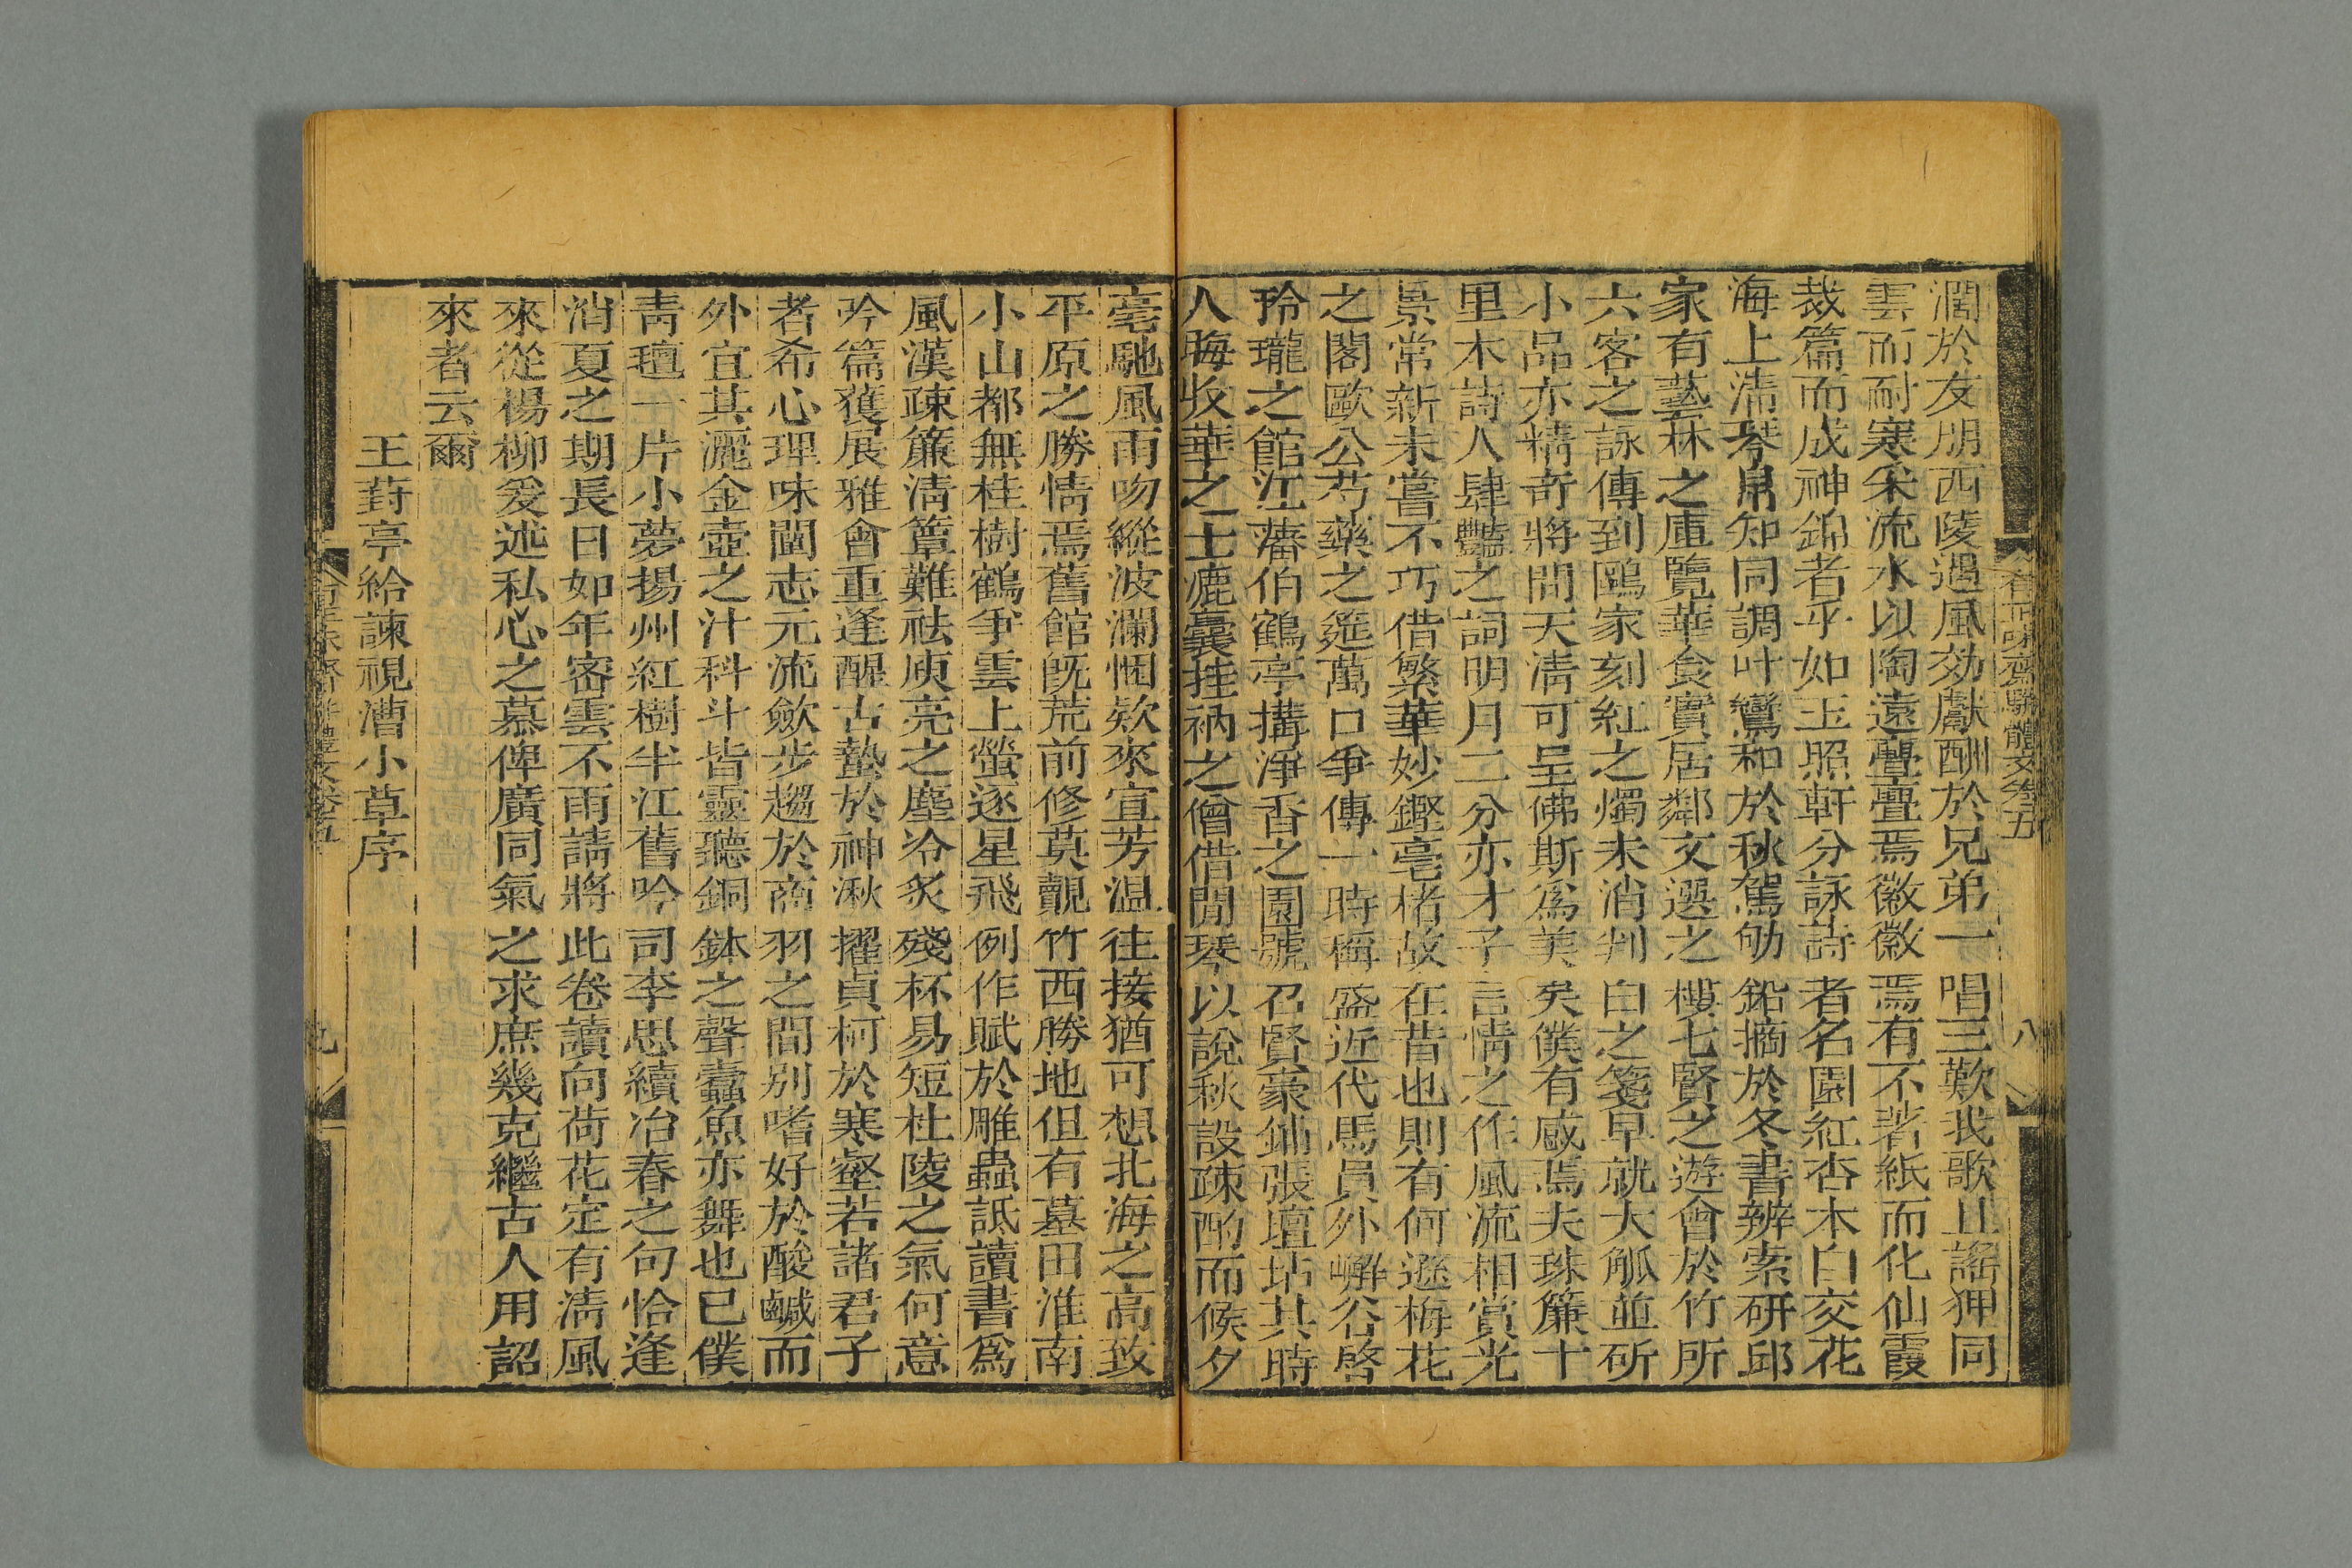 濶於友朋西陵遇風効獻酬於兄弟一唱三歎我歌且謠狎同
雲而耐寒采流水以陶遠亹亹焉徽徽焉有不著紙而化仙霞
裁篇而成神錦者乎如玉照軒分詠詩者名園紅杏木白交花
海上淸琴帛知同調叶鸞和於秋駕劬鉛摘於冬書辨索研邱
家有藝林之庫覽華食實居鄰文選之樓七賢之遊會於竹所
六客之詠傳到鷗家刻紅之燭未消判白之箋早就大觚並斫
小品亦精奇將問天淸可呈佛斯爲美矣僕有感焉夫珠簾十
里木詩人肆豔之詞明月二分亦才子言情之作風流相賞光
景常新未嘗不巧借繁華妙鏗毫楮故在昔也則有何遜梅花
之閣歐公芍藥之筵萬口爭傳一時稱盛近代馬員外嶰谷啓
玲瓏之館江藩伯鶴亭搆淨香之園號召賢豪鋪張壇坫其時
八晦收華之士漉囊挂衲之僧借閒琴以說秋設疎酌而候夕
毫馳風雨吻縱波瀾悃欵來宣芳温往接猶可想北海之高致
平原之勝情焉舊館旣荒前修莫覿竹西勝地但有墓田淮南
小山都無桂樹鶴爭雲上螢逐星飛例作賦於雕蟲詆讀書爲
風漢疎簾淸簟難祛庾亮之塵冷炙殘杯易短杜陵之氣何意
吟篇獲展雅會重逢醒古蟄於神湫擢貞柯於寒壑若諸君子
者希心理味閫志元流歛步趨於商羽之間别嗜好於酸鹹而
外宜其灑金壺之汁科斗皆靈聽銅鉢之聲蠹魚亦舞也已僕
靑氊一片小夢揚州紅樹半江舊吟司李思續冶春之句恰逢
消夏之期長日如年密雲不雨請將此卷讀向荷花定有淸風
來從楊柳爰述私心之慕俾廣同氣之求庶幾克繼古人用詔
來者云爾
王葑亭給諫視漕小草序
有正味齋駢體文卷五
八
有正味齋駢體文卷五
九